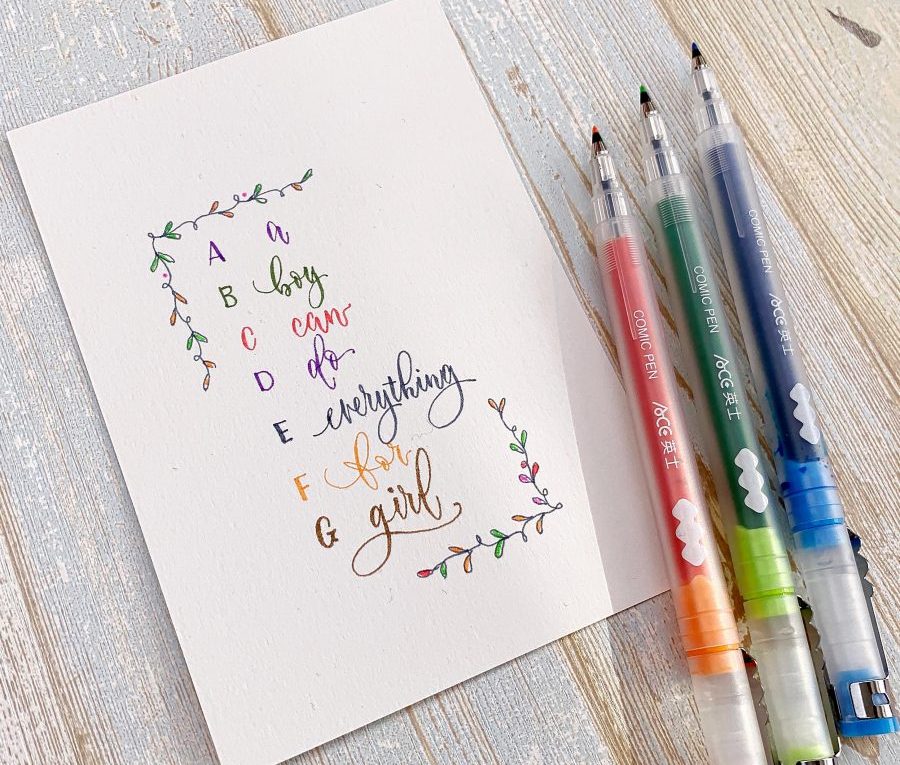 A a
B boy
C can
D do
E everything
F for
G girl
COMIC PEN ACE 英士
COMIC PEN ACE 英士
COMIC PEN ACE 英士